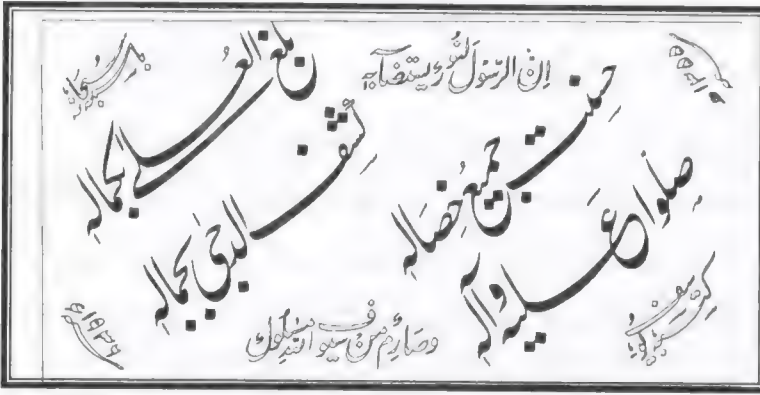 باسمه سبحانه
ان الرسول لنور يستضاء به
بلغ العلى بكماله
كشف الدجى بجماله
حسنت جميع خصاله
صلوا عليه وآله
وصارم من سيوف الله مسلول
۱۹۳۶ء